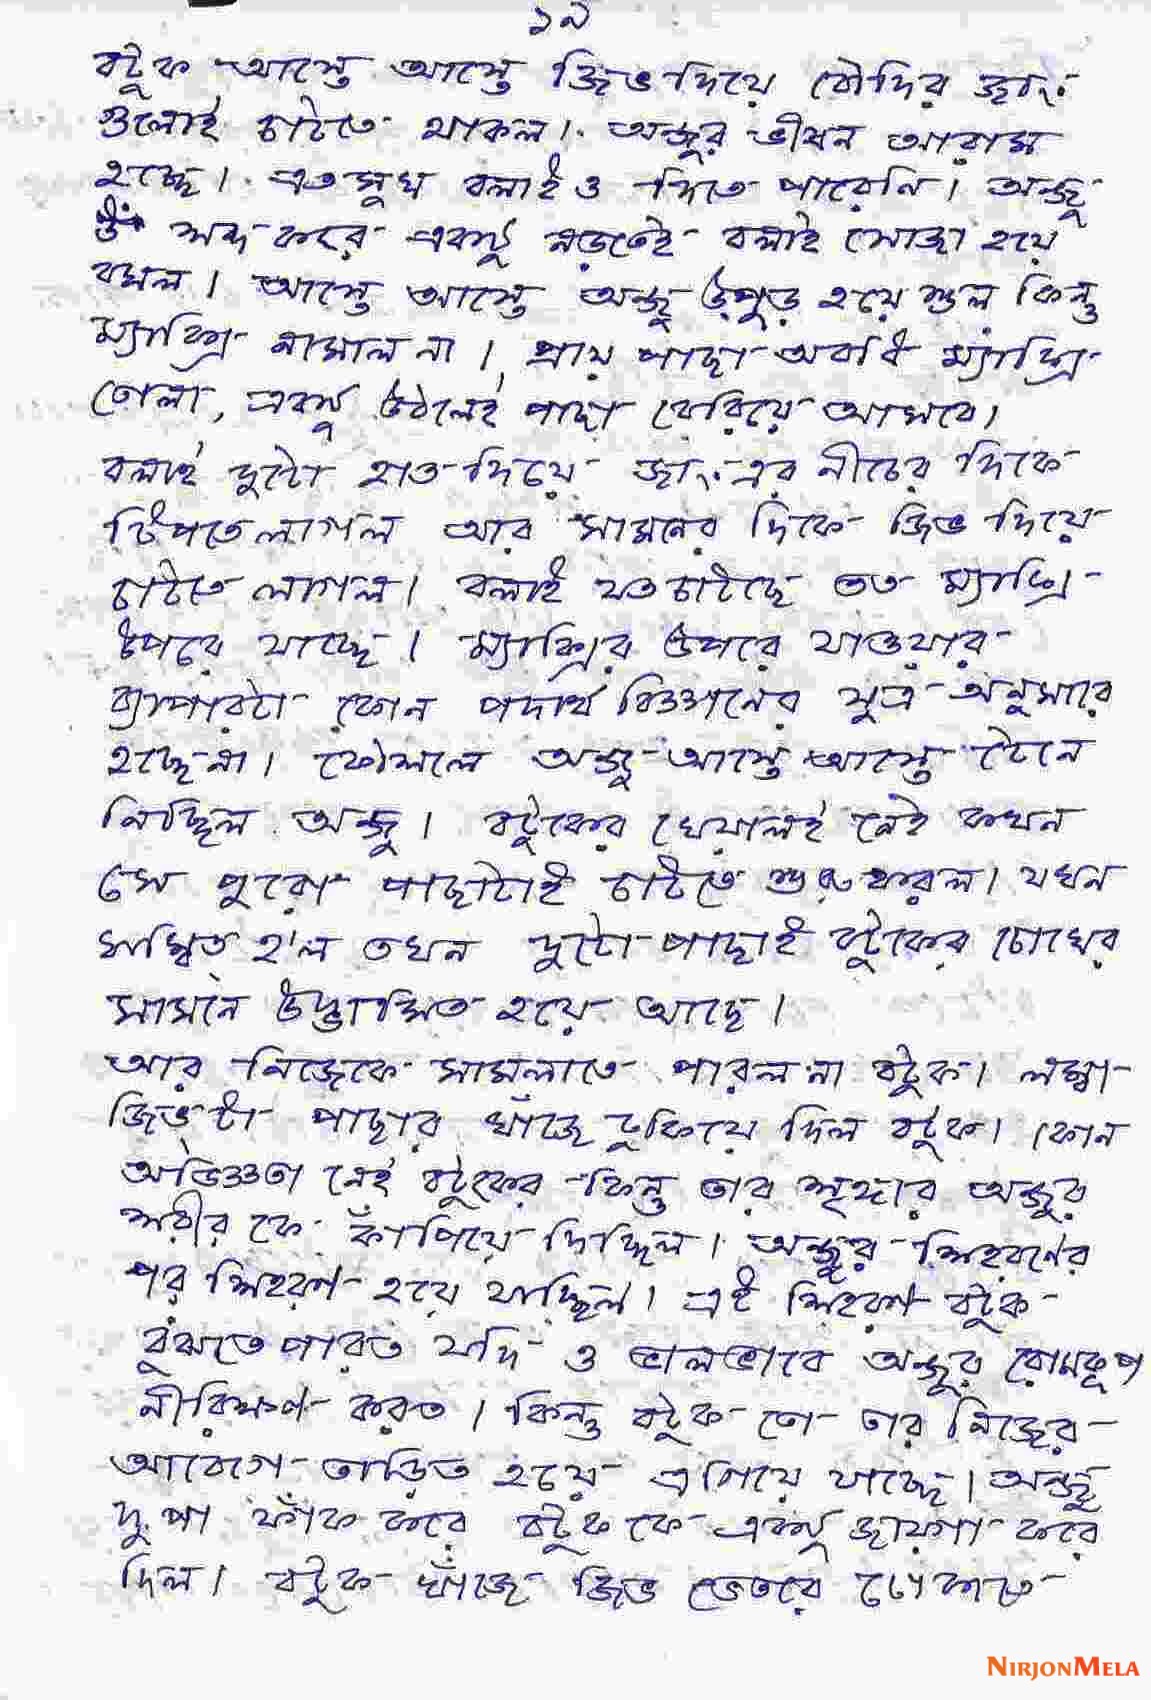 ১৯
বটুক আস্তে আস্তে জিভ দিয়ে বৌদির জাং
গুলোই চাটতে থাকল। অঞ্জুর ভীষন আরাম
হচ্ছে। এত সুখ বলাইও দিতে পারেনি। অঞ্জু
উঃ শব্দ করে একটু নড়তেই বলাই সোজা হয়ে
বসল। আস্তে আস্তে অঞ্জু উপুড় হয়ে শুল কিন্তু
ম্যাক্সি নামাল না। প্রায় পাছা অবধি ম্যাক্সি
তোলা, একটু উঠলেই পাছা বেরিয়ে আসবে।
বলাই দুটো হাত দিয়ে জাং এর নীচের দিকে
টিপতে লাগল আর সামনের দিকে জিভ দিয়ে
চাটতে লাগল। বলাই যত চাটছে তত ম্যাক্সি
উপরে যাচ্ছে। ম্যাক্সির উপরে যাওয়ার
ব্যাপারটা কোন পদার্থ বিজ্ঞানের সুত্র অনুসারে
হচ্ছে না। কৌশলে অঞ্জু আস্তে আস্তে টেনে
নিচ্ছিল অঞ্জু। বটুকের খেয়ালই নেই কখন
সে পুরো পাছাটাই চাটতে শুরু করল। যখন
সম্বিত হ'ল তখন দুটো পাছাই বটুকের চোখের
সামনে উদ্ভাসিত হয়ে আছে।
আর নিজেকে সামলাতে পারল না বটুক। লম্বা
জিভটা পাছার খাঁজে ঢুকিয়ে দিল বটুক। কোন
অভিজ্ঞতা নেই বটুকের কিন্তু তার শৃঙ্গার অঞ্জুর
শরীর কে কাঁপিয়ে দিচ্ছিল। অঞ্জুর শিহরণের
পর শিহরণ হয়ে যাচ্ছিল। এই শিহরণ বটুক
বুঝতে পারত যদি ও ভালভাবে অঞ্জুর রোমকূপ
নীরিক্ষণ করত। কিন্তু বটুক তো তার নিজের
আবেগে তাড়িত হয়ে এগিয়ে যাচ্ছে। অঞ্জু
দু পা ফাঁক করে বটুক কে একটু জায়গা করে
দিল। বটুক খাঁজে জিভ ভেতরে ঢোকাতে
NIRJONMELA